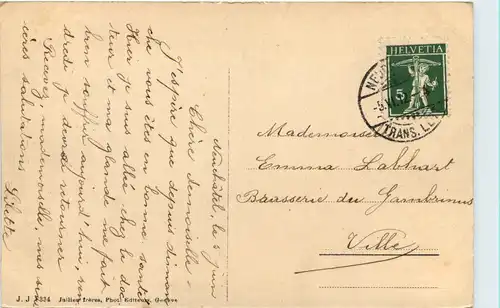 Neuchâtel, le 5 juin
Chère demoiselle
J'espère que depuis diman-
che vous êtes en bonne santé
Hier je suis allé chez le doc
teur et ma glande me fait
bien souffrir aujourd'hui, ven
dredi je devrai retourner
Recevez, mademoiselle, mes sin
cères salutations
HELVETIA
5
TRANS. LE
Mademoiselle
Emma Labhart
Brasserie du Gambrinus
Ville
J. J. 8334 Jullien frères, Phot. Editeurs, Genève